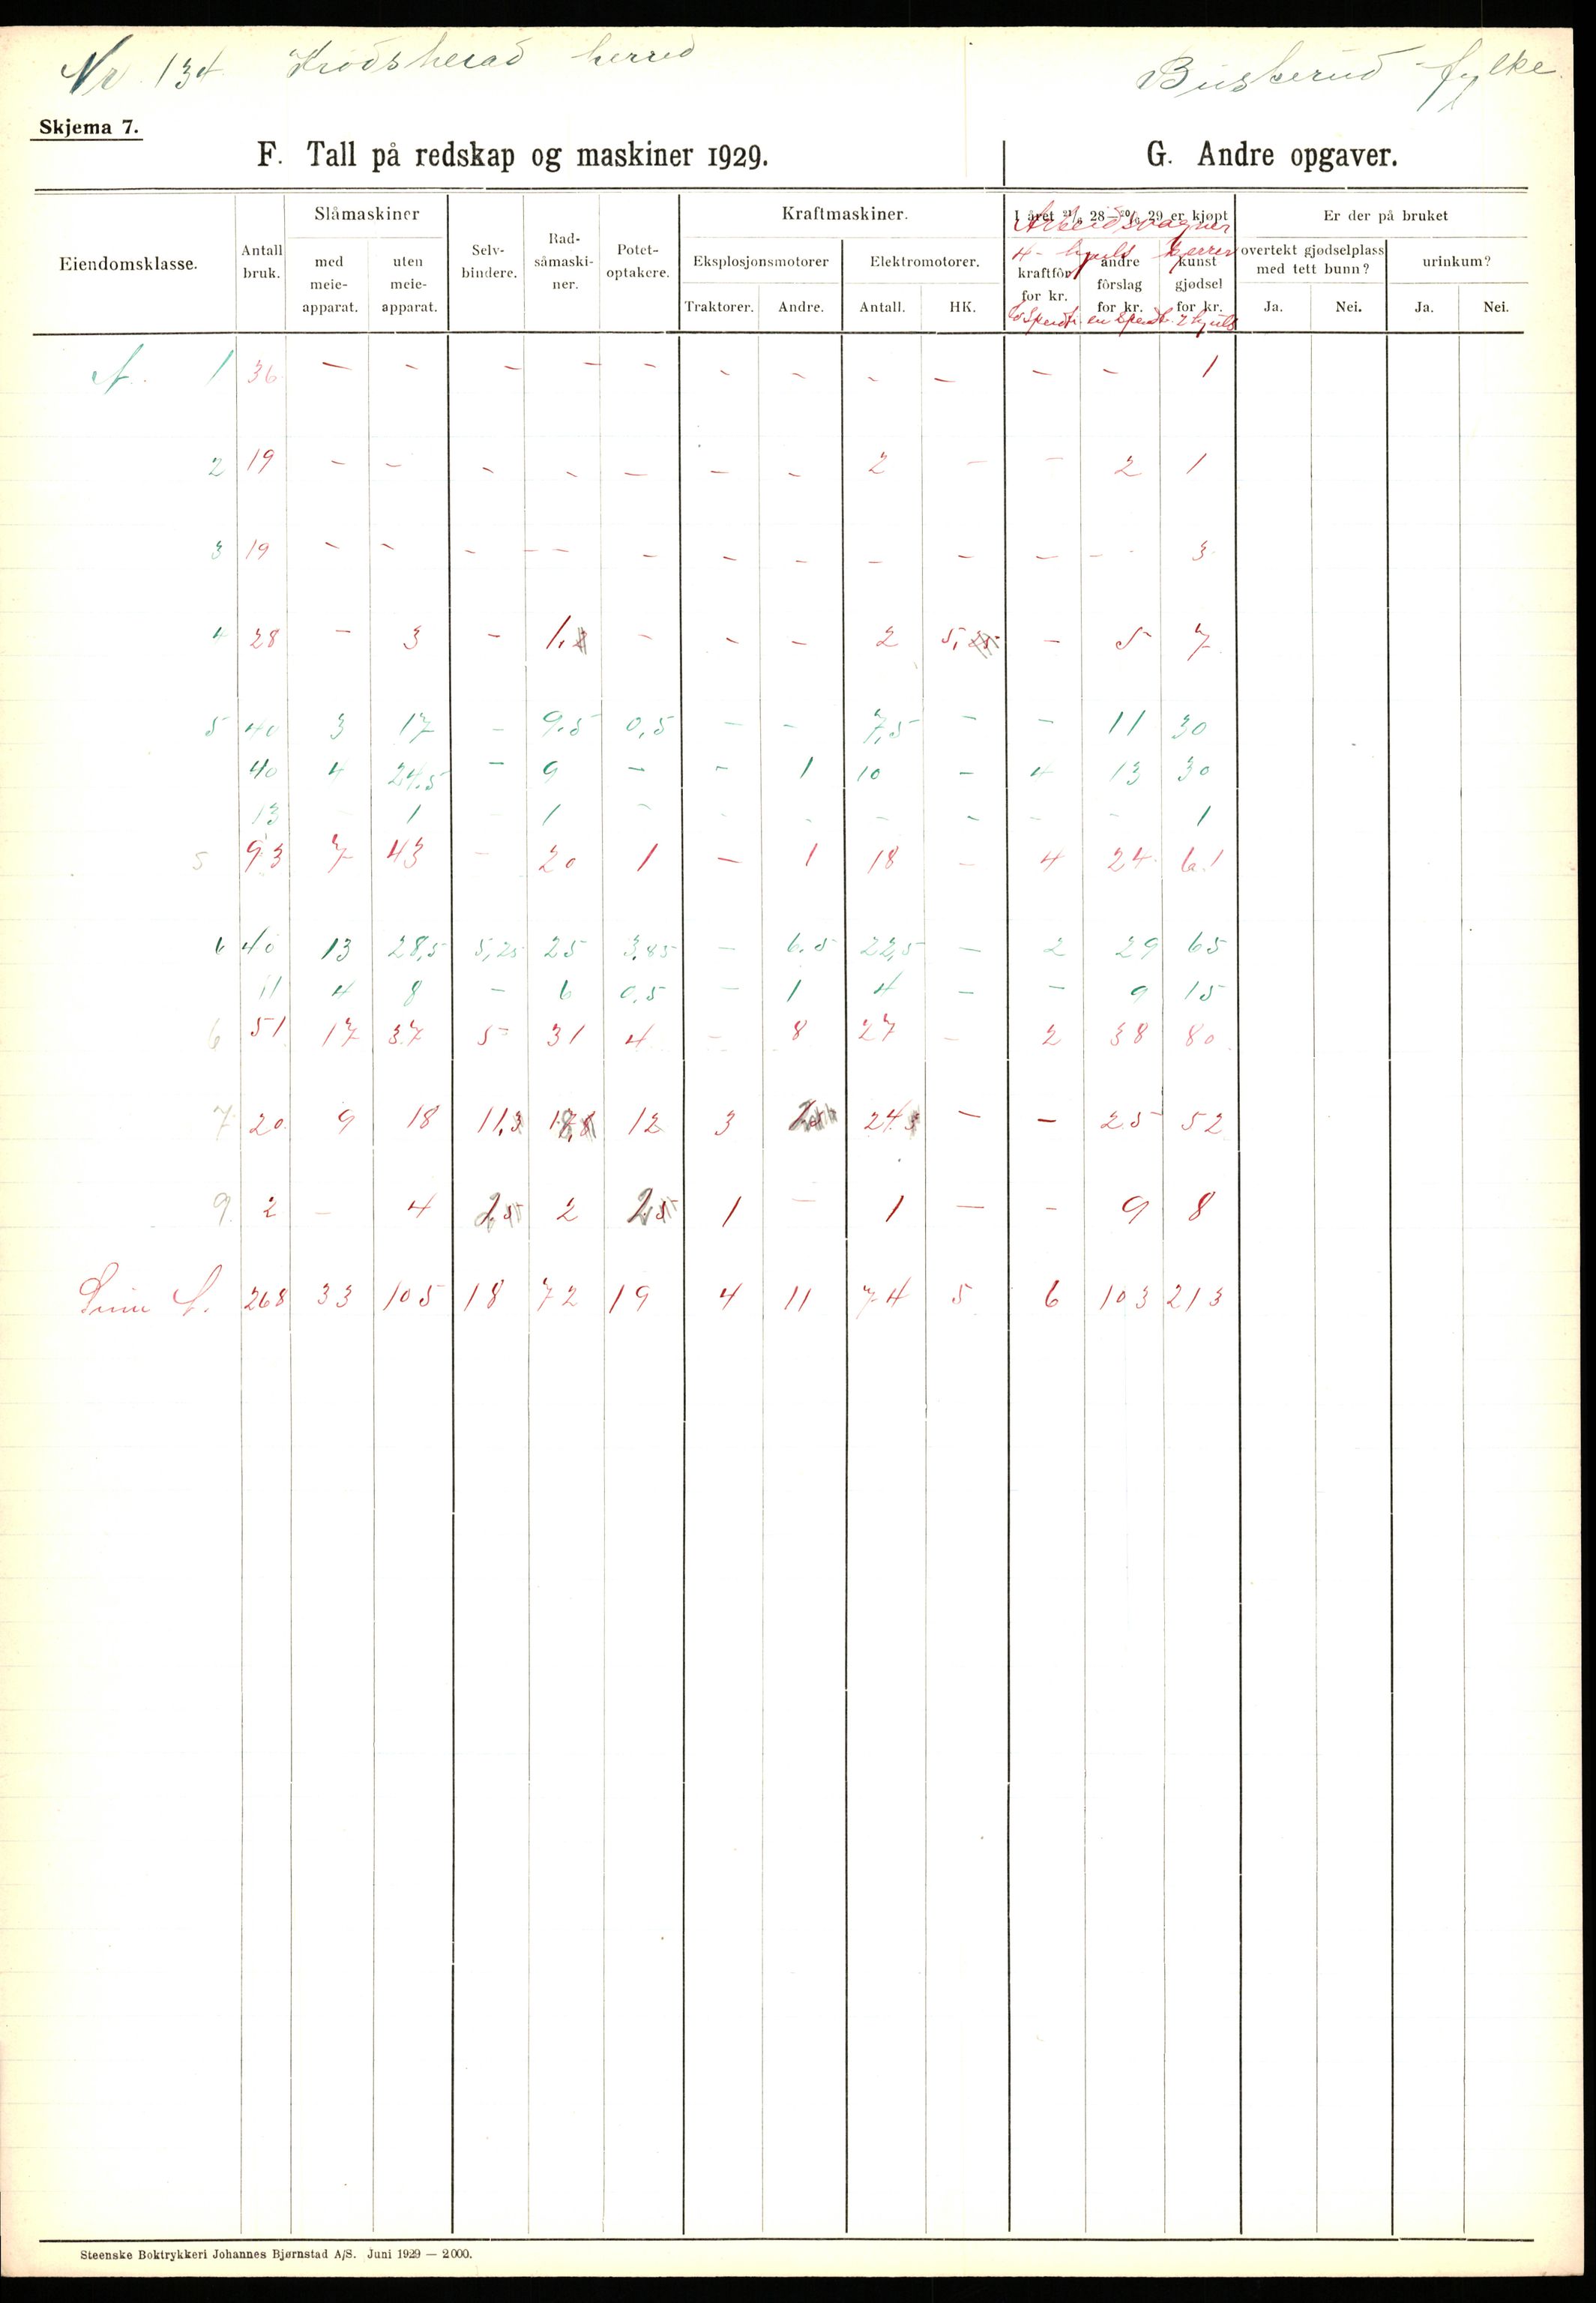 Nr. 134 Krødsherad herred Buskerud fylke.
Skjema 7.
F. Tall på redskap og maskiner 1929. G. Andre opgaver.
Eiendomsklasse.
Antall bruk.
Slåmaskiner
med meie-apparat.
uten meie-apparat.
Selv-bindere.
Rad-såmaski-ner.
Potet-optakere.
Kraftmaskiner.
Eksplosjonsmotorer
Traktorer.
Andre.
Elektromotorer.
Antall.
HK.
I året 21/6 28—20/6 29 er kjøpt
kraftfôr for kr.
andre fôrslag for kr.
kunst gjødsel for kr.
Arbeidsvogner
4-hjuls kjerrer
en spent. 2 hjuls
Er der på bruket
overtekt gjødselplass med tett bunn?
Ja.
Nei.
urinkum?
Ja.
Nei.
A. 1 36 — — — — — — — — — — — 1
2 19 — — — — — — — 2 — — 2 1
3 19 — — — — — — — — — — — — 3
4 28 — 3 — 1, — — — 2 5, — 5 7
5 40 3 17 — 9.5 0,5 — — 7,5 — — 11 30
40 4 24.5 — 9 — — 1 10 — 4 13 30
13 — 1 — 1 — — — — — — — 1
5 93 7 43 — 20 1 — 1 18 — 4 24 61
6 40 13 28,5 5,25 25 3,85 — 6.5 22,5 — 2 29 65
11 4 8 — 6 0.5 — 1 4 — — 9 15
6 51 17 37 5 31 4 — 8 27 — 2 38 80
7 20 9 18 11,3 12 3 24.5 — — 25 52
9 2 — 4 2 1 — 1 — — 9 8
Sum A. 268 33 105 18 72 19 4 11 74 5 6 103 213
Steenske Boktrykkeri Johannes Bjørnstad A/S. Juni 1929 — 2000.